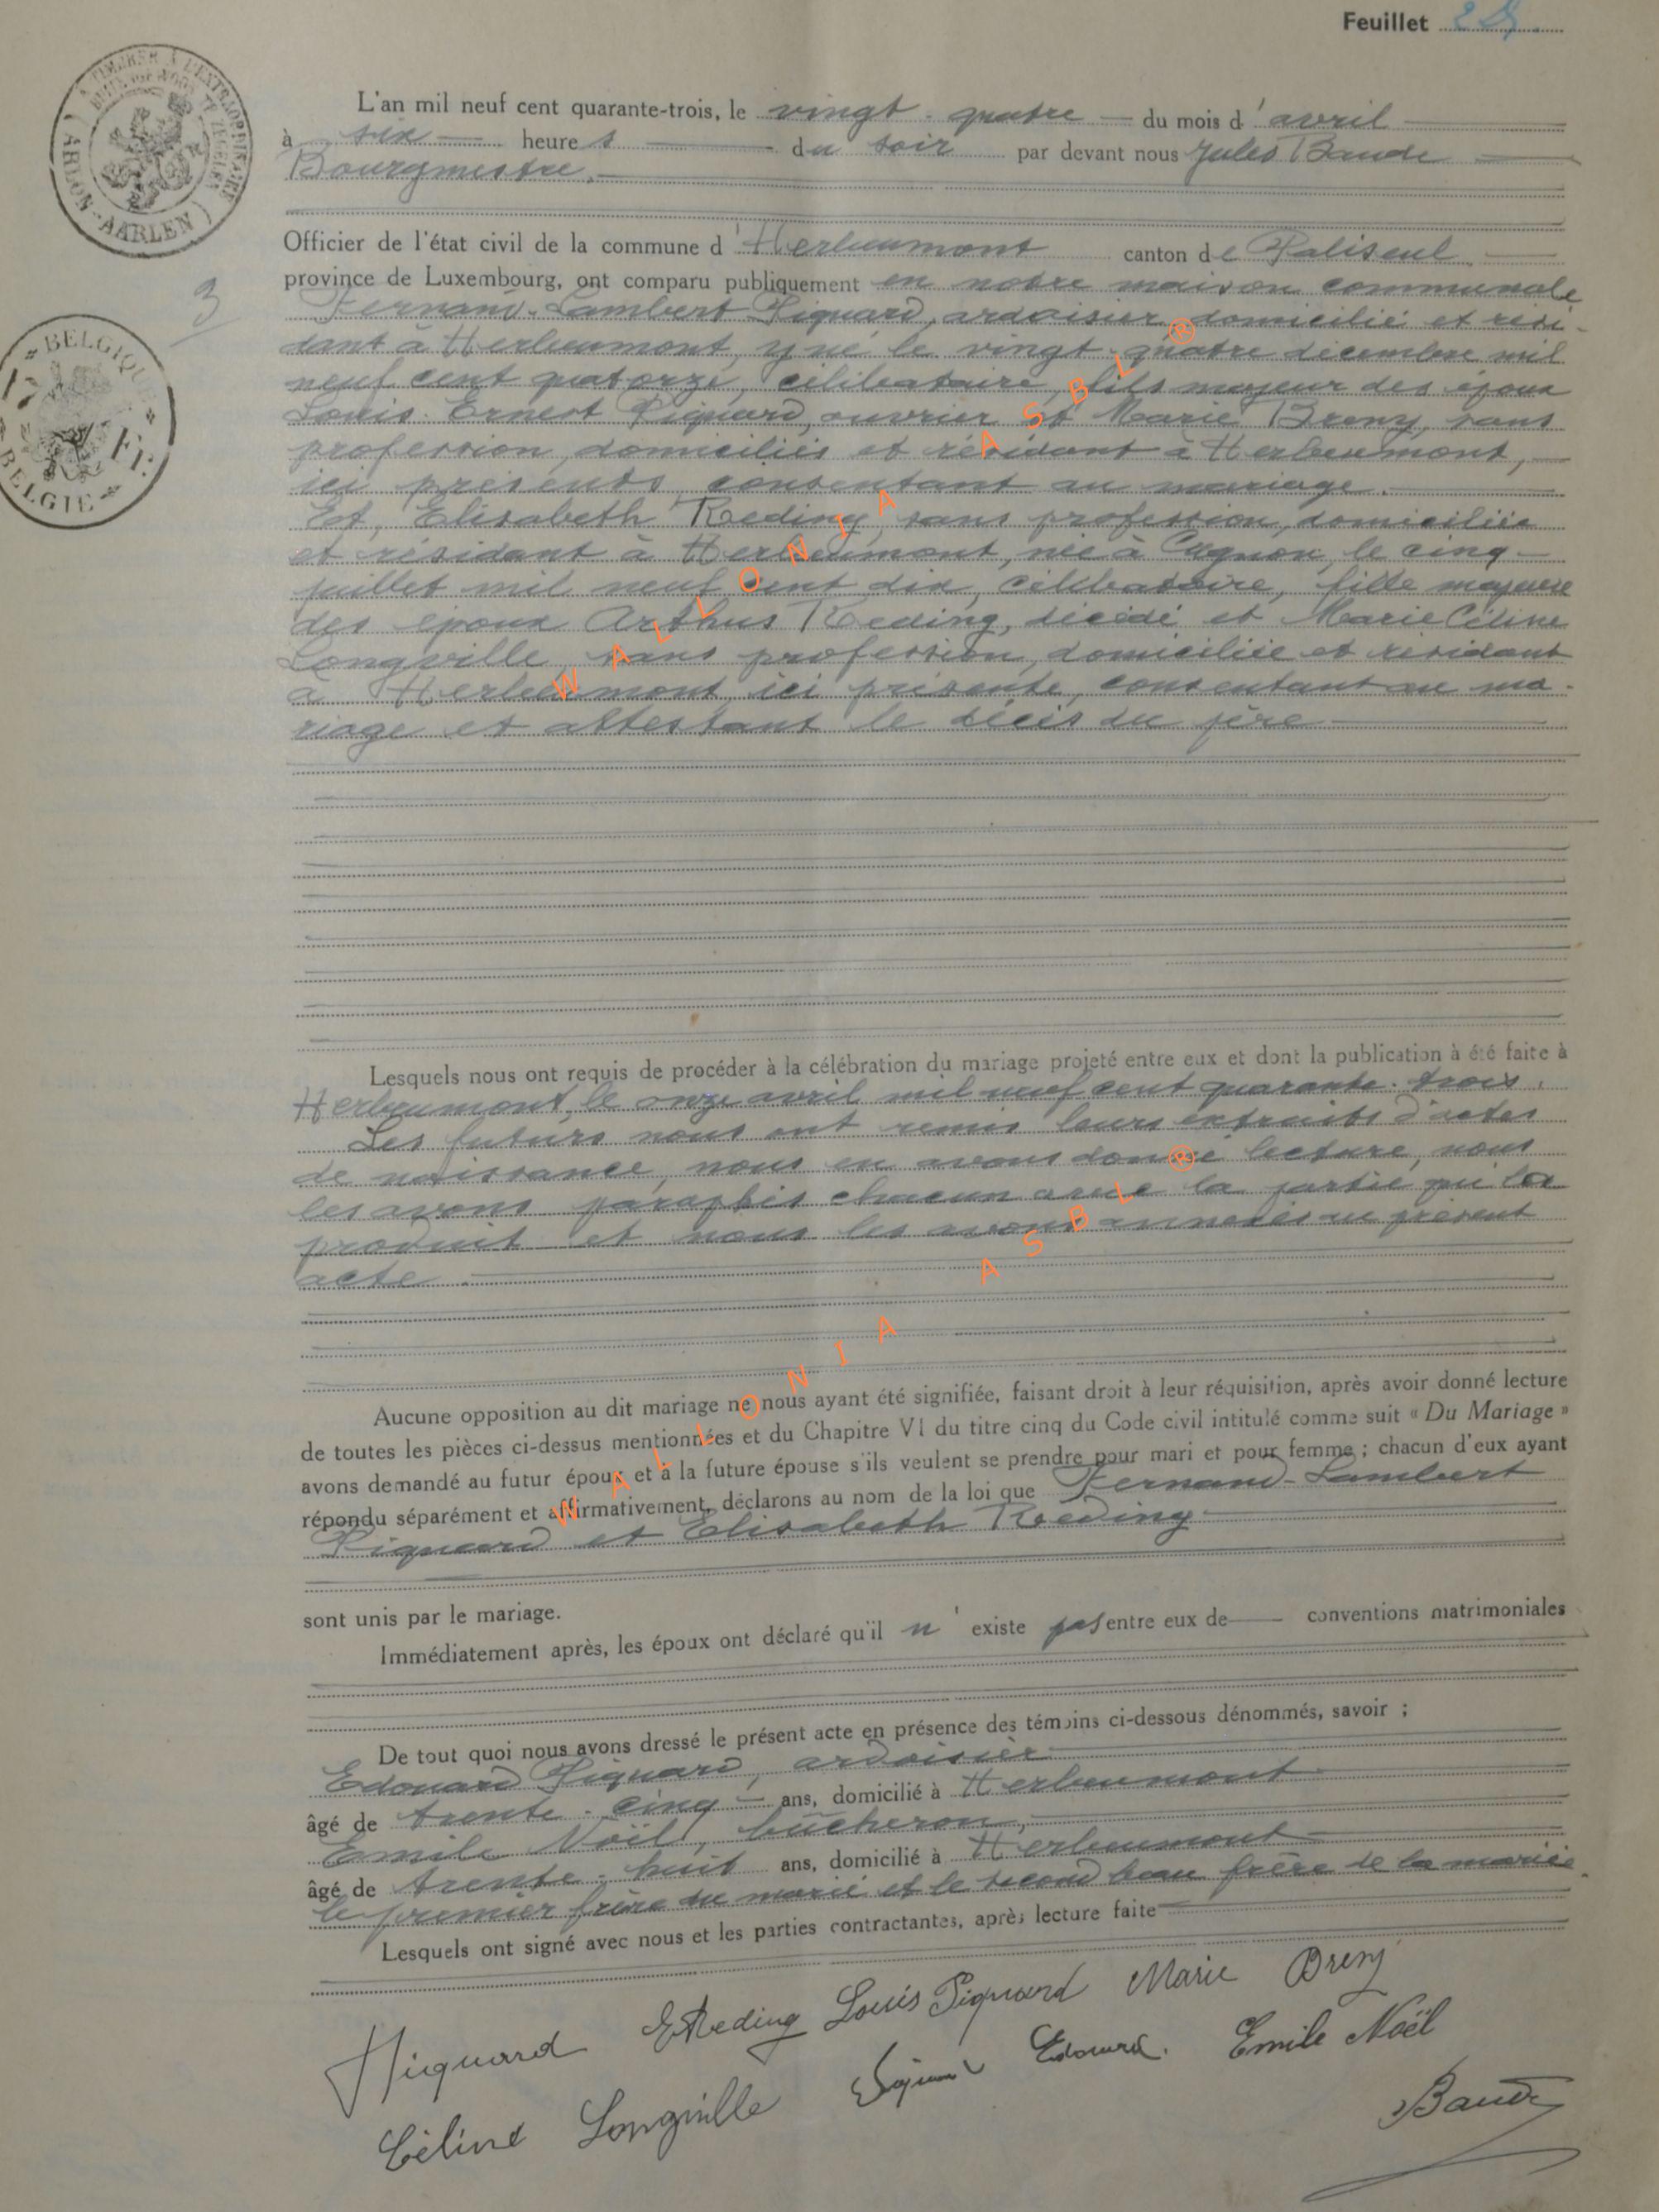 Feuillet 25
L'an mil neuf cent quarante-trois, le vingt-quatre — du mois d'avril
à six — heures — du soir par devant nous Jules Baude
Bourgmestre.
Officier de l'état civil de la commune d'Herbeumont canton de Paliseul
province de Luxembourg, ont comparu publiquement en notre maison communale
Fernand-Lambert Piquard, ardoisier domicilié et rési-
dant à Herbeumont, y né le vingt-quatre décembre mil
neuf cent quatorze, célibataire, fils majeur des époux
Louis-Ernest Piquard, ouvrier et Marie Breny, sans
profession, domiciliés et résidant à Herbeumont,
ici présents, consentant au mariage.
Et, Elisabeth Reding, sans profession, domiciliée
et résidant à Herbeumont, née à Cugnon, le cinq
juillet mil neuf cent dix, célibataire, fille majeure
des époux Arthus Reding, décédé et Marie Céline
Longville, sans profession, domiciliée et résidant
à Herbeumont, ici présente, consentant au ma-
riage et attestant le décès du père
Lesquels nous ont requis de procéder à la célébration du mariage projeté entre eux et dont la publication à été faite à
Herbeumont, le onze avril mil neuf cent quarante-trois.
Les futurs nous ont remis leurs extraits d'actes
de naissance, nous en avons donné lecture, nous
les avons paraphés chacun avec la partie qui les
produit et nous les avons annexés au présent
acte.
Aucune opposition au dit mariage ne nous ayant été signifiée, faisant droit à leur réquisition, après avoir donné lecture
de toutes les pièces ci-dessus mentionnées et du Chapitre VI du titre cinq du Code civil intitulé comme suit « Du Mariage »
avons demandé au futur époux et à la future épouse s'ils veulent se prendre pour mari et pour femme ; chacun d'eux ayant
répondu séparément et affirmativement, déclarons au nom de la loi que Fernand-Lambert
Piquard et Elisabeth Reding
sont unis par le mariage.
Immédiatement après, les époux ont déclaré qu'il n'existe pas entre eux de — conventions matrimoniales
De tout quoi nous avons dressé le présent acte en présence des témoins ci-dessous dénommés, savoir ;
Edouard Piquard, ardoisier
âgé de trente-cinq — ans, domicilié à Herbeumont
Emile Noël, bûcheron,
âgé de trente-huit ans, domicilié à Herbeumont
le premier frère du marié et le second beau frère de la mariée.
Lesquels ont signé avec nous et les parties contractantes, après lecture faite
FPiquard EReding Louis Piquard Marie Breny
Céline Longville Piquard Edouard. Emile Noël
Baude
A TIMBRER A L'EXTRAORDINAIRE
BUITENGEWOON TE ZEGELEN
(ARLON-AARLEN)
3
BELGIQUE
Fr.
BELGIE
WALLONIA ASBL ®
WALLONIA ASBL ®